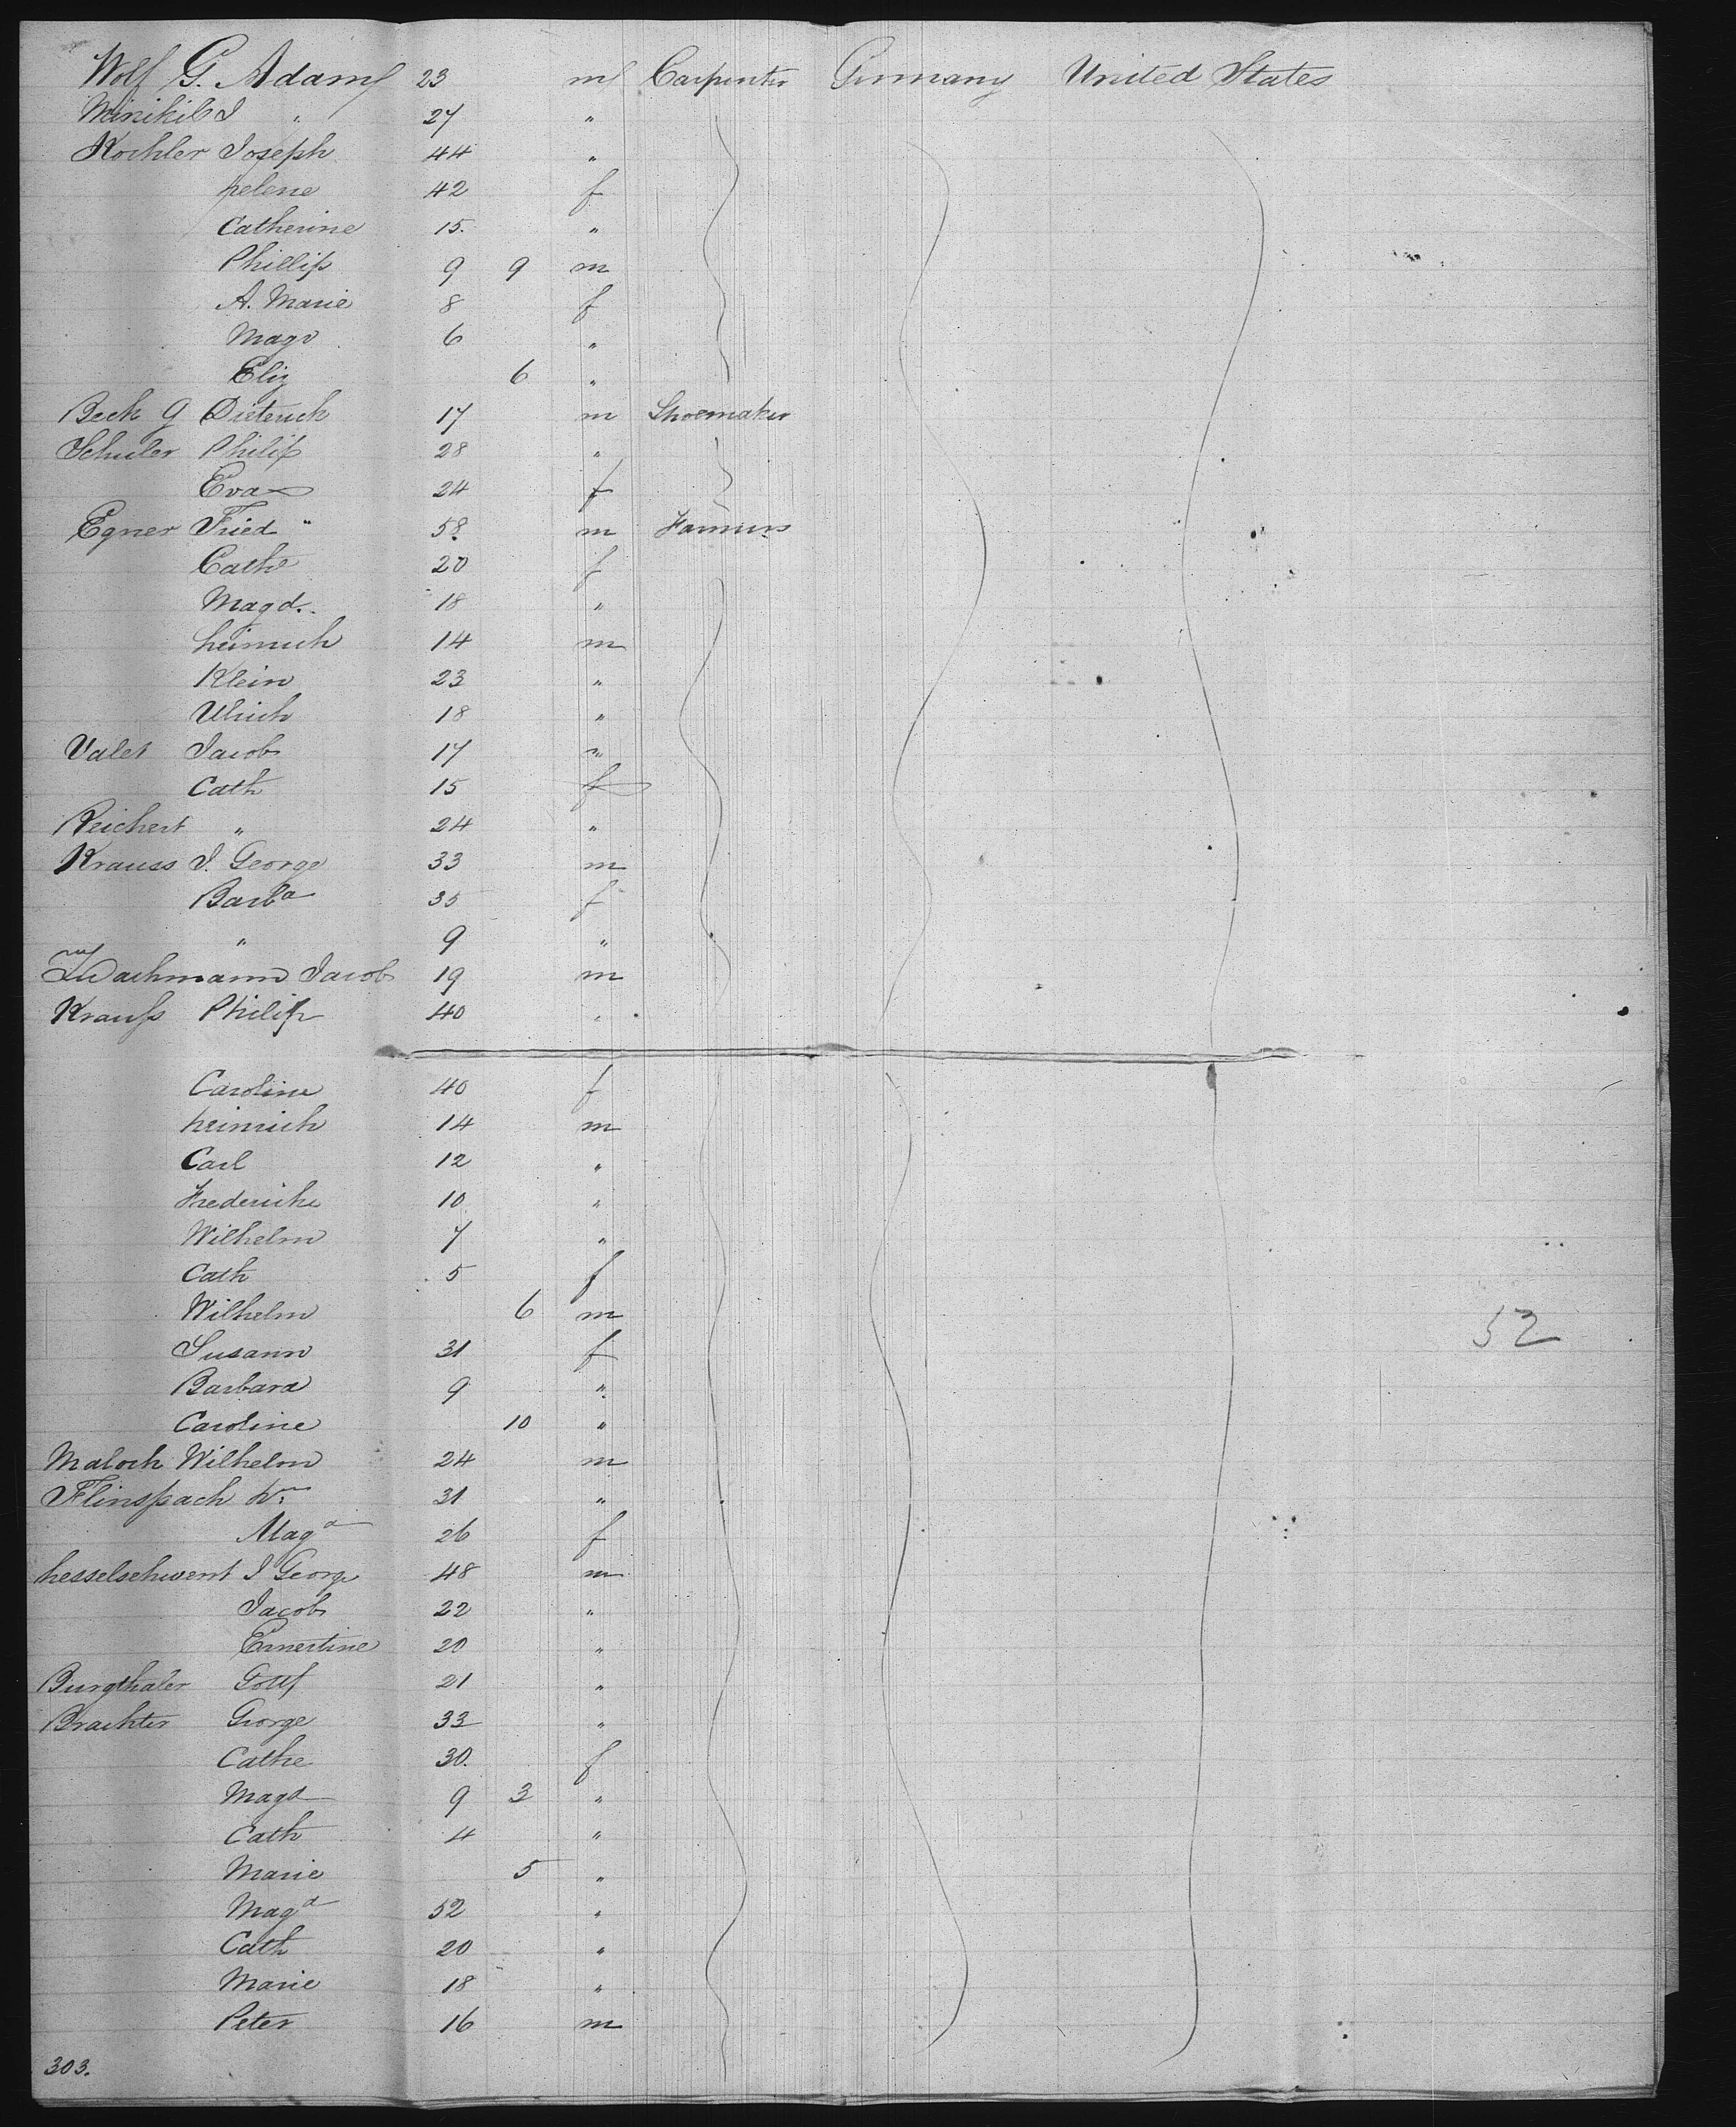 Wolf G. Adam 23 m Carpenter Germany United States
Minikil J " 27 "
Kochler Joseph 44 "
helene 42 f
Catherine 15. "
Phillip 9 9 m
A. Marie 8 f
Magd 6 "
Eliz 6 "
Beck G Dieterich 17 m Shoemaker
Schuler Philip 28 "
Eva 24 f
Egner Fried " 58. m Farmers
Cathe 20 f
Magd. 18 "
heinrich 14 m
Klein 23 "
Ulrich 18 "
Valet Jacob 17 "
Cath 15 f
Reichert " 24 "
Krauss J. George 33 m
Barba 35 f
" 9 "
Jacob 19 m
Krauss Philip 40 "
Caroline 40 f
heinrich 14 m
Carl 12 "
Frederiche 10 "
Wilhelm 7 "
Cath 5 f
Wilhelm 6 m
Susann 31 f
52
Barbara 9 "
Caroline 10 "
Maloch Wilhelm 24 m
Flinspach Wm 31 "
Maga 26 f
hesselschwert J George 48 m
Jacob 22 "
Ernestine 20 "
Burgthaler Gottf 21 "
Brachter George 33 "
Cathe 30. f
Magd 9 3 "
Cath 4 "
Marie 5 "
Magd 52 "
Cath 20 "
Marie 18 "
Peter 16 m
303.